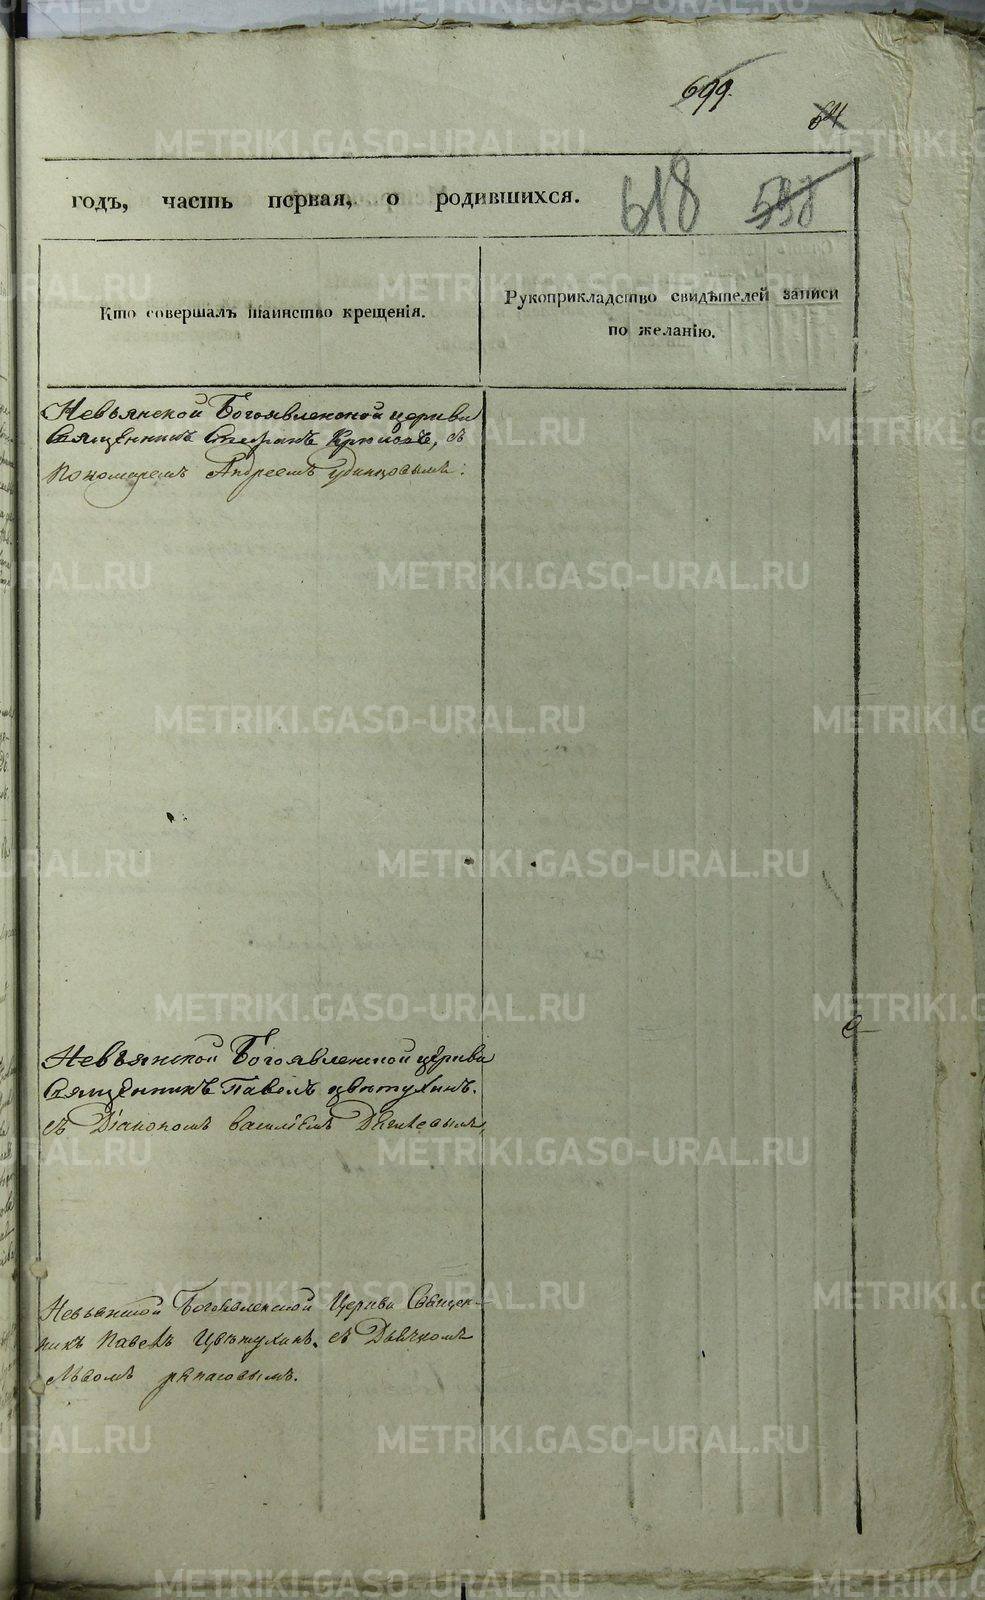 699.
64
годъ, часть первая, о родившихся.
618 598
Кто совершалъ таинство крещенія.
Рукоприкладство свидѣтелей записи
по желанію.
Невьянской Богоявленской церкви
Священникъ Стефанъ съ
Пономаремъ Андреемъ Удинцовымъ:
Невьянской Богоявленской церкви
Священникъ Павелъ Цвѣтухинъ.
съ Діакономъ Василіемъ
Невьянской Богоявленской Церкви Священ-
никъ Павелъ Цвѣтухинъ. съ Дьячкомъ
Львомъ
METRIKI.GASO-URAL.RU